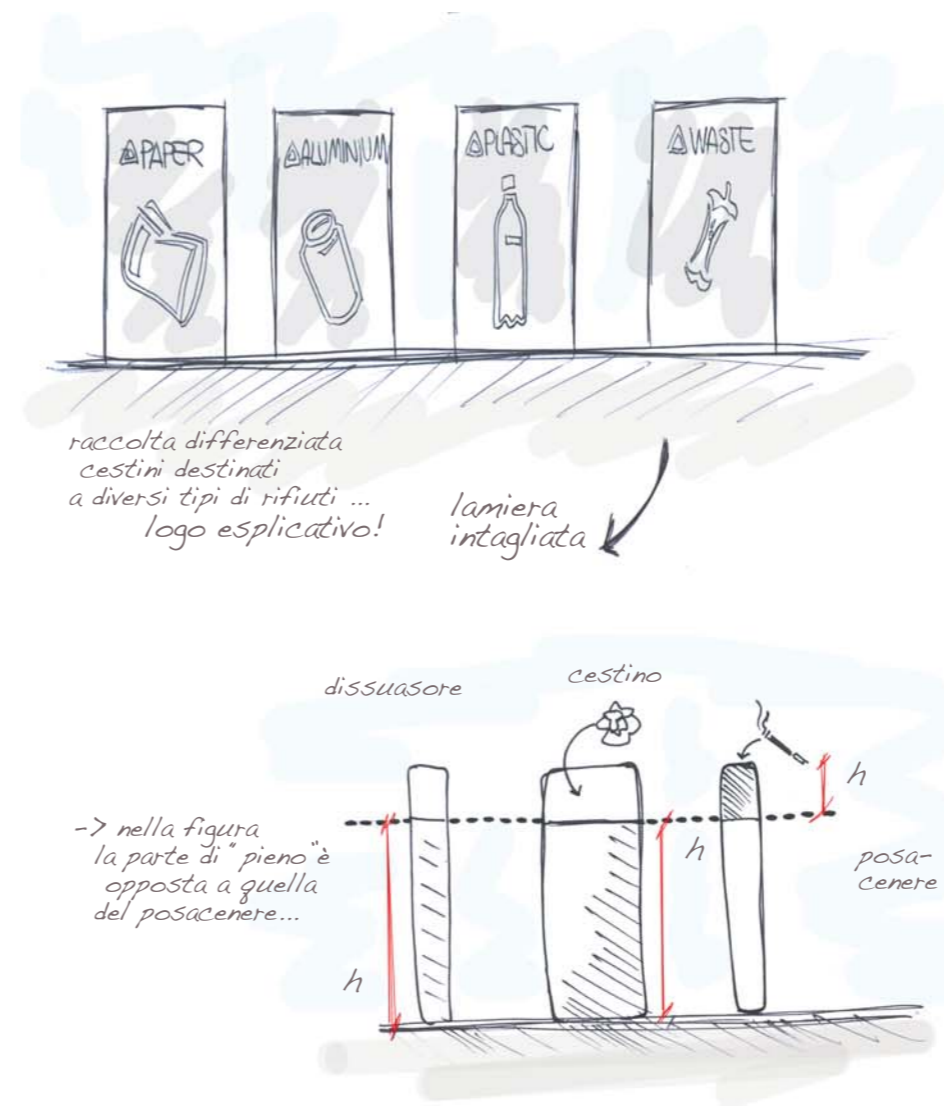 PAPER
ALUMINIUM
PLASTIC
WASTE
raccolta differenziata
cestini destinati
a diversi tipi di rifiuti ...
logo esplicativo!
lamiera
intagliata
dissuasore
cestino
h
-> nella figura
la parte di "pieno" è
opposta a quella
del posacenere...
h
posa-
cenere
h